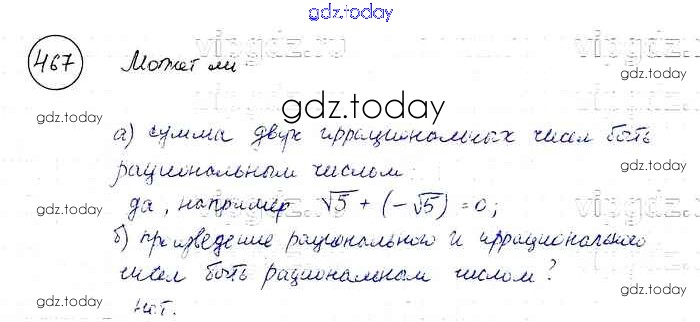 gdz.today
467 Может ли
gdz.today
а) сумма двух иррациональных чисел быть
рациональным числом:
да, например √5 + (-√5) = 0;
б) произведение рационального и иррационального
чисел быть рациональным числом?
нет.
vipgdz.ru
vipgdz.ru
gdz.today
gdz.today
gdz.today
gdz.today
gdz.today
gdz.today
vipgdz.ru
vipgdz.ru